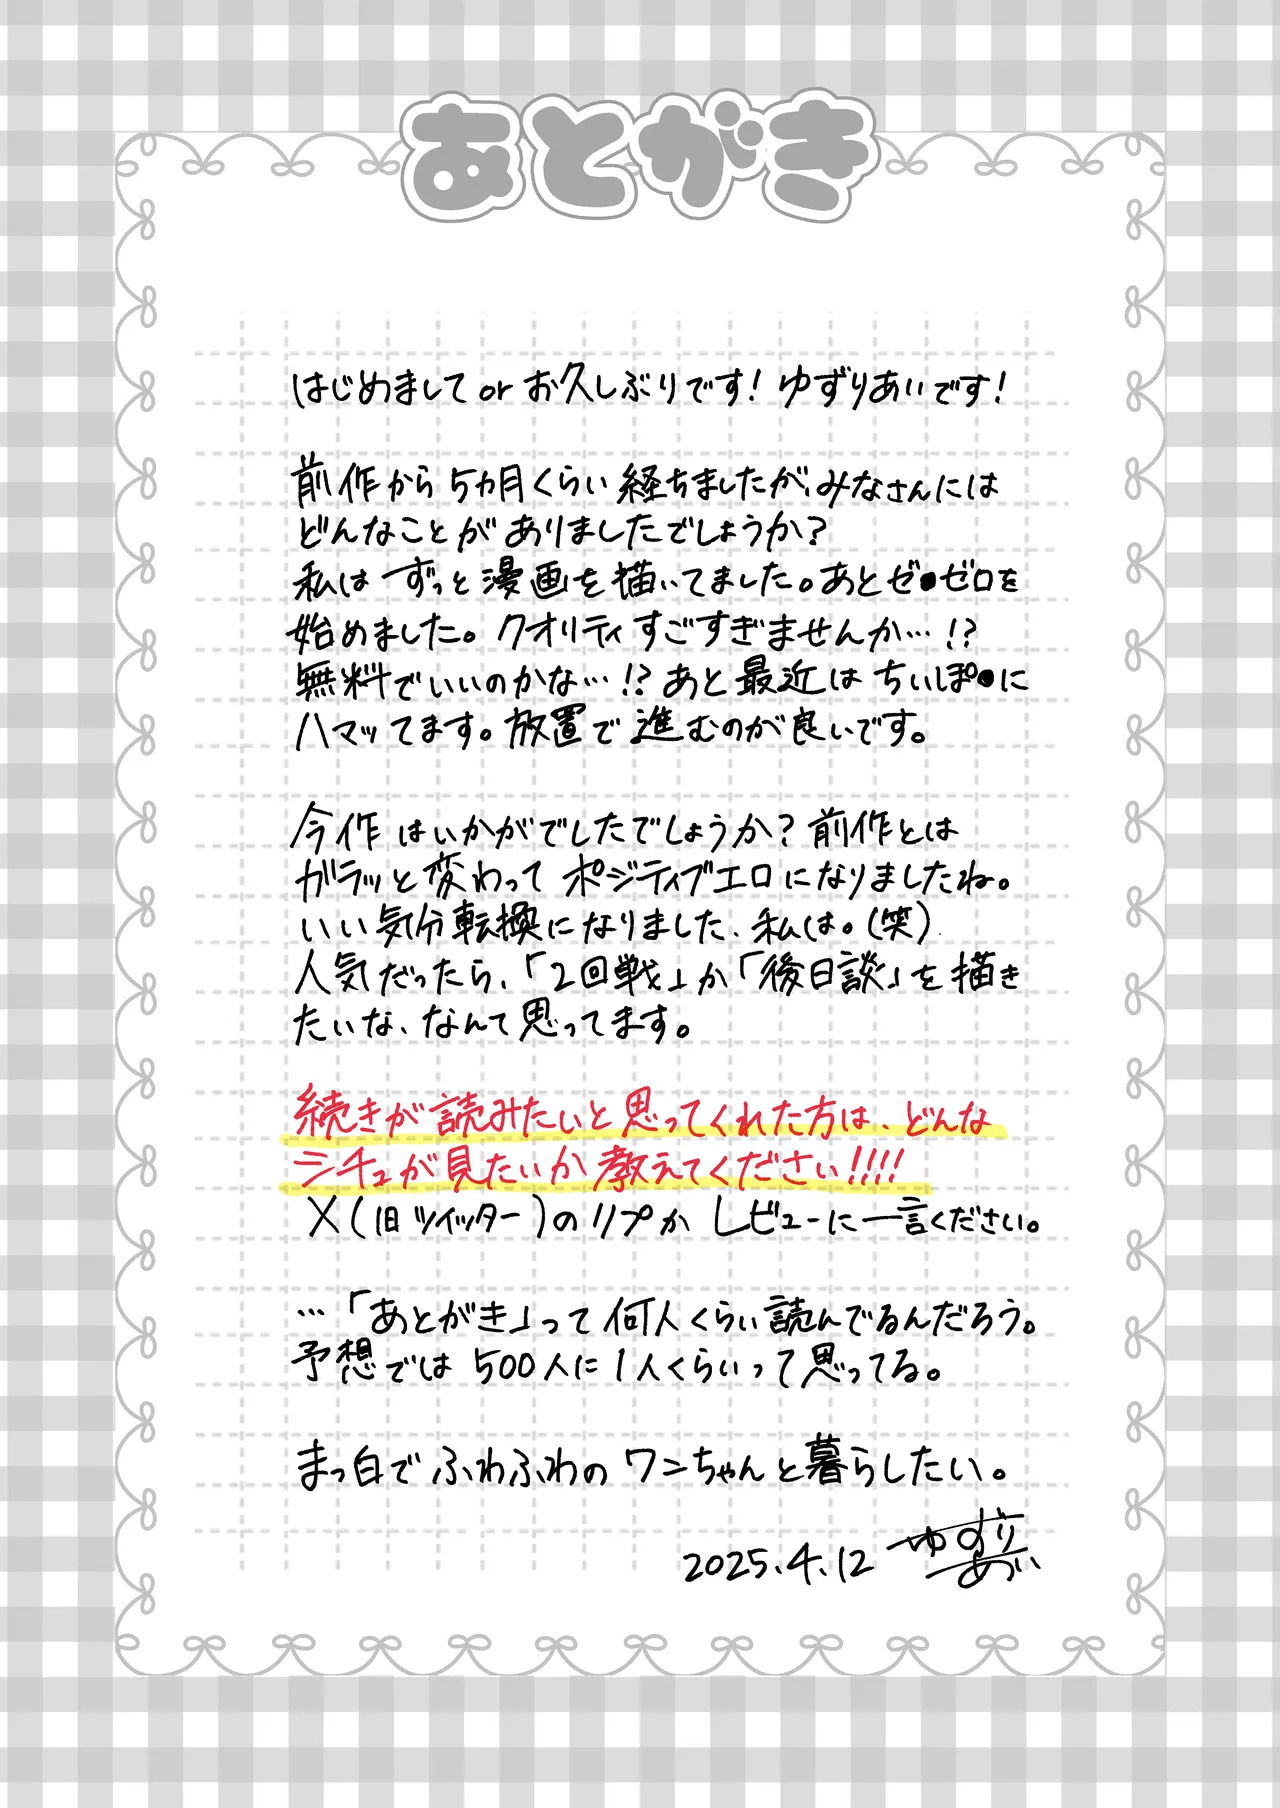 あとがき
はじめまして or お久しぶりです！ゆずりあいです！
前作から5カ月くらい経ちましたが、みなさんには
どんなことがありましたでしょうか？
私はずっと漫画を描いてました。あとゼ●ゼロを
始めました。クオリティすごすぎませんか…！？
無料でいいのかな…！？あと最近はちいぽ●に
ハマッてます。放置で進むのが良いです。
今作はいかがでしたでしょうか？前作とは
ガラッと変わってポジティブエロになりましたね。
いい気分転換になりました、私は。（笑）
人気だったら、「2回戦」か「後日談」を描き
たいな、なんて思ってます。
続きが読みたいと思ってくれた方は、どんな
シチュが見たいか教えてください！！！！
X（旧ツイッター）のリプかレビューに一言ください。
…「あとがき」って何人くらい読んでるんだろう。
予想では500人に1人くらいって思ってる。
まっ白でふわふわのワンちゃんと暮らしたい。
2025.4.12 ゆずりあい